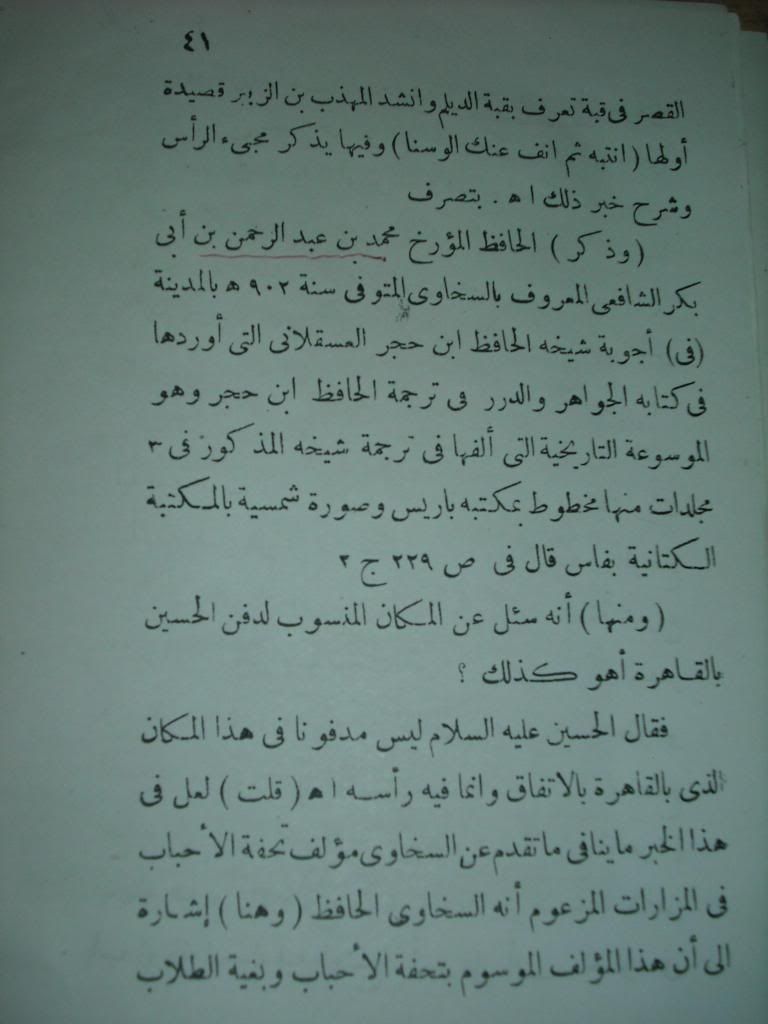 ٤١
القصر فى قبة تعرف بقبة الديلم وانشد المهذب بن الزبير قصيدة
أولها ( انتبه ثم انف عنك الوسنا ) وفيها يذكر مجىء الرأس
وشرح خبر ذلك ا ه . بتصرف
( وذكر ) الحافظ المؤرخ محمد بن عبد الرحمن بن أبى
بكر الشافعى المعروف بالسخاوى المتوفى سنة ٩٠٢ ه بالمدينة
( فى ) أجوبة شيخه الحافظ ابن حجر العسقلانى التى أوردها
فى كتابه الجواهر والدرر فى ترجمة الحافظ ابن حجر وهو
الموسوعة التاريخية التى ألفها فى ترجمة شيخه المذكور فى ٣
مجلدات منها مخطوط بمكتبه باريس وصورة شمسية بالمكتبة
الكتانية بفاس قال فى ص ٢٢٩ ج ٢
( ومنها ) أنه سئل عن المكان المنسوب لدفن الحسين
بالقاهرة أهو كذلك ؟
فقال الحسين عليه السلام ليس مدفونا فى هذا المكان
الذى بالقاهرة بالاتفاق وانما فيه رأسه ا ه ( قلت ) لعل فى
هذا الخبر ما ينافى ما تقدم عن السخاوى مؤلف تحفة الأحباب
فى المزارات المزعوم أنه السخاوى الحافظ ( وهنا ) إشارة
الى أن هذا المؤلف الموسوم بتحفة الأحباب وبغية الطلاب